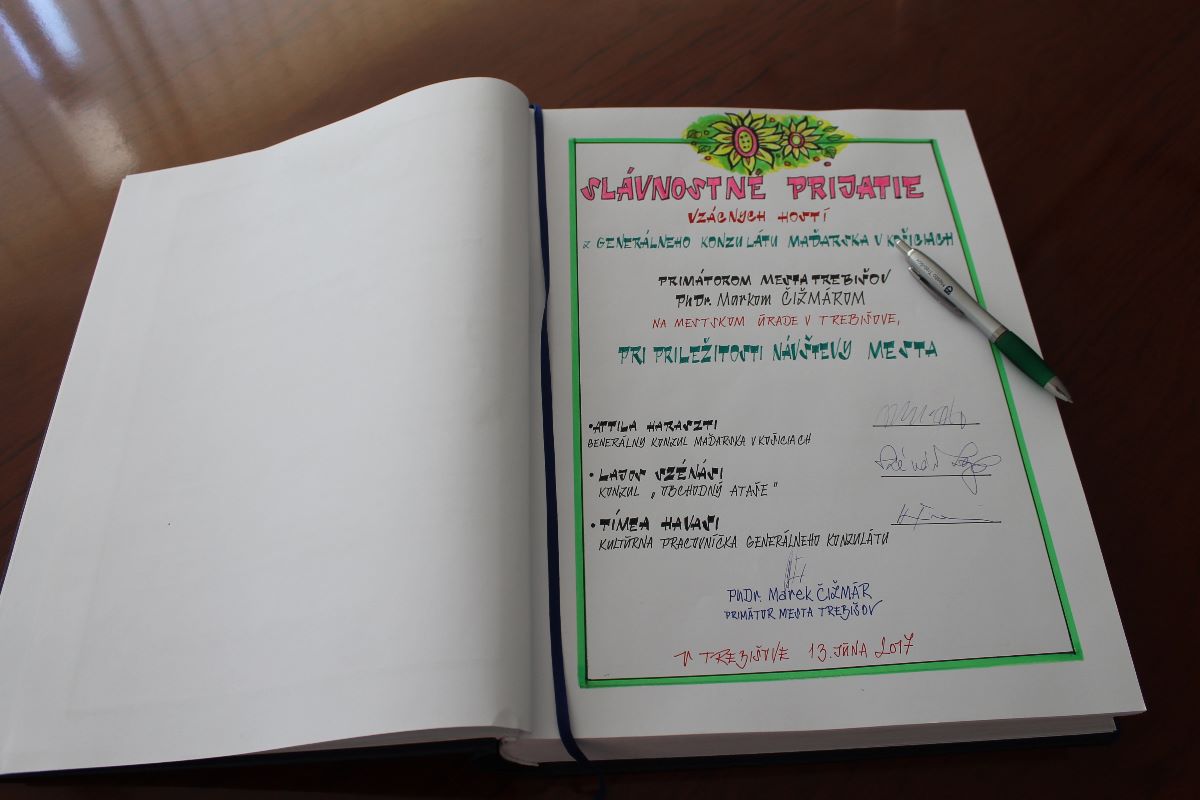 SLÁVNOSTNÉ PRIJATIE
VZÁCNYCH HOSTÍ
Z GENERÁLNEHO KONZULÁTU MAĎARSKA V KOŠICIACH
PRIMÁTOROM MESTA TREBIŠOV
PhDr. Markom ČIŽMÁROM
NA MESTSKOM ÚRADE V TREBIŠOVE,
PRI PRILEŽITOSTI NÁVŠTEVY MESTA
•ATTILA HARASZTI
GENERÁLNY KONZUL MAĎARSKA V KOŠICIACH
• LAJOS SZÉNÁSI
KONZUL „OBCHODNÝ ATAŠE"
• TÍMEA HAVASI
KULTÚRNA PRACOVNÍČKA GENERÁLNEHO KONZULÁTU
PhDr. Marek ČIŽMÁR
PRIMÁTOR MESTA TREBIŠOV
V TREBIŠOVE 13. JÚNA 2017